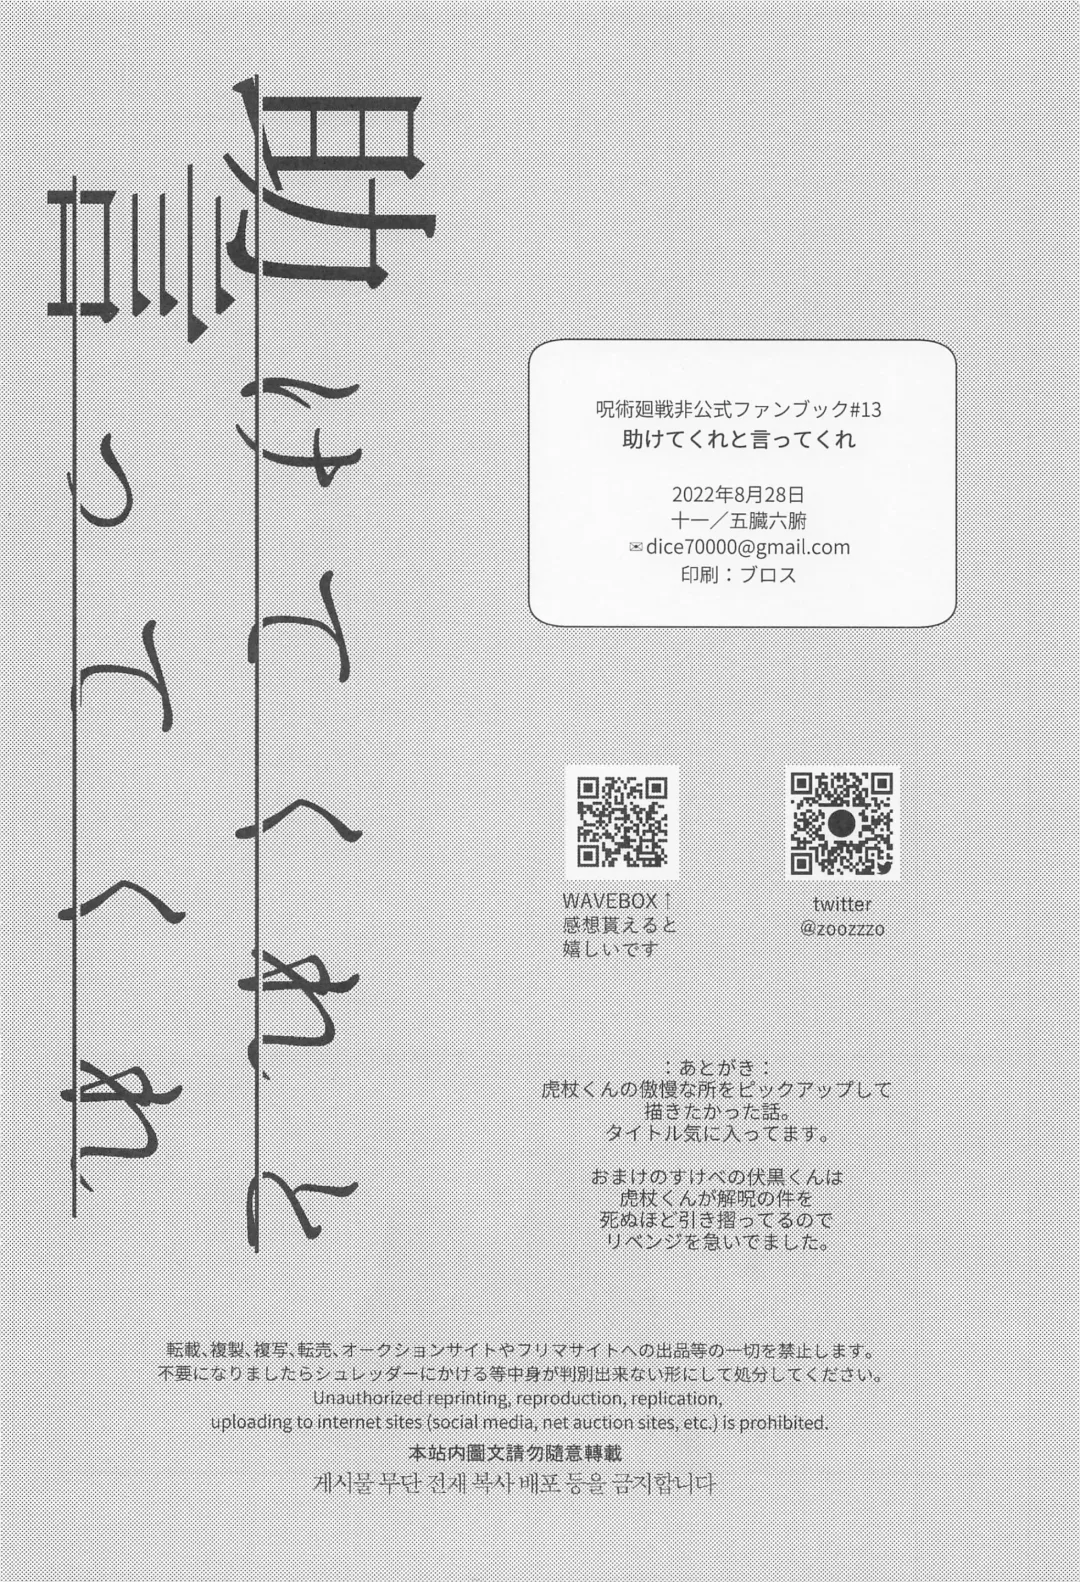 助けてくれと
言ってくれ
呪術廻戦非公式ファンブック#13
助けてくれと言ってくれ
2022年8月28日
十一／五臓六腑
✉dice70000@gmail.com
印刷：ブロス
WAVEBOX↑
感想貰えると
嬉しいです
twitter
@zoozzzo
：あとがき：
虎杖くんの傲慢な所をピックアップして
描きたかった話。
タイトル気に入ってます。
おまけのすけべの伏黒くんは
虎杖くんが解呪の件を
死ぬほど引き摺ってるので
リベンジを急いでました。
転載、複製、複写、転売、オークションサイトやフリマサイトへの出品等の一切を禁止します。
不要になりましたらシュレッダーにかける等中身が判別出来ない形にして処分してください。
Unauthorized reprinting, reproduction, replication,
uploading to internet sites (social media, net auction sites, etc.) is prohibited.
本站内圖文請勿隨意轉載
게시물 무단 전재 복사 배포 등을 금지합니다